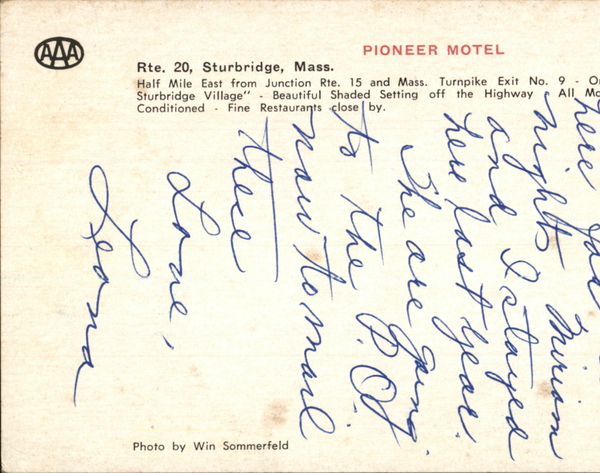 AAA
PIONEER MOTEL
Rte. 20, Sturbridge, Mass.
Half Mile East from Junction Rte. 15 and Mass. Turnpike Exit No. 9 - O
Sturbridge Village" - Beautiful Shaded Setting off the Highway - All Mo
Conditioned - Fine Restaurants close by.
here for
night. Miriam
and I stayed
here last year.
She are going
to the P.O.
now to mail
these
Love,
Leona
Photo by Win Sommerfeld